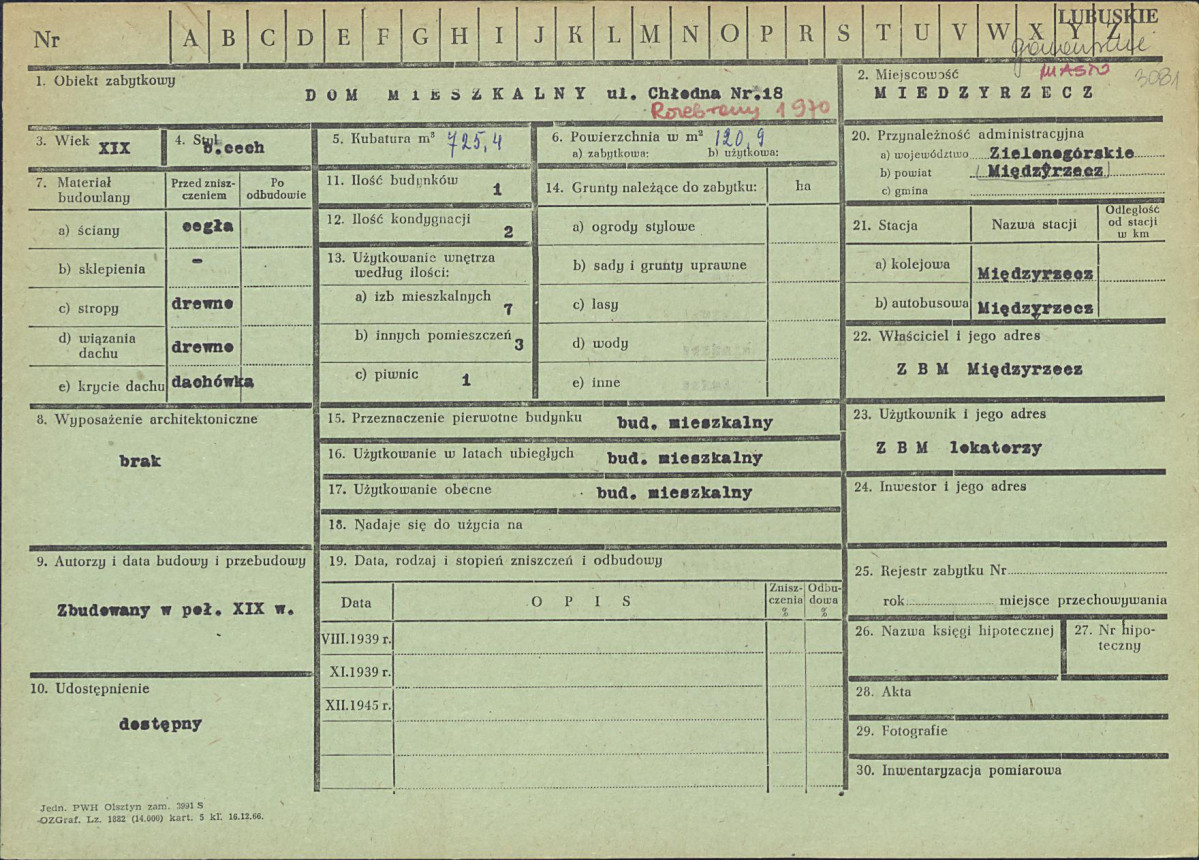 LUBUSKIE
Nr A B C D E F G H I J K L M N O P R S T U V W X Y Z
MIASTO 3081
1. Obiekt zabytkowy
DOM MIESZKALNY ul. Chłodna Nr.18
Rozebrany 1970
2. Miejscowość
MIEDZYRZECZ
3. Wiek XIX
4. Styl b.cech
5. Kubatura m³ 725,4
6. Powierzchnia w m² 120,9
a) zabytkowa: b) użytkowa:
20. Przynależność administracyjna
a) województwo Zielonogórskie
b) powiat (Międzyrzecz)
c) gmina
7. Materiał budowlany
Przed znisz-
czeniem
Po
odbudowie
a) ściany cegła
b) sklepienia -
c) stropy drewno
d) wiązania
dachu drewno
e) krycie dachu dachówka
11. Ilość budynków 1
12. Ilość kondygnacji 2
13. Użytkowanie wnętrza
według ilości:
a) izb mieszkalnych 7
b) innych pomieszczeń 3
c) piwnic 1
14. Grunty należące do zabytku: ha
a) ogrody stylowe
b) sady i grunty uprawne
c) lasy
d) wody
e) inne
21. Stacja Nazwa stacji
Odległość
od stacji
w km
a) kolejowa Międzyrzecz
b) autobusowa Międzyrzecz
22. Właściciel i jego adres
Z B M Międzyrzecz
8. Wyposażenie architektoniczne
brak
15. Przeznaczenie pierwotne budynku bud. mieszkalny
16. Użytkowanie w latach ubiegłych bud. mieszkalny
17. Użytkowanie obecne bud. mieszkalny
18. Nadaje się do użycia na
23. Użytkownik i jego adres
Z B M lokatorzy
24. Inwestor i jego adres
9. Autorzy i data budowy i przebudowy
Zbudowany w poł. XIX w.
10. Udostępnienie
dostępny
19. Data, rodzaj i stopień zniszczeń i odbudowy
Data O P I S
Znisz-
czenia
%
Odbu-
dowa
%
VIII.1939 r.
XI.1939 r.
XII.1945 r.
25. Rejestr zabytku Nr
rok miejsce przechowywania
26. Nazwa księgi hipotecznej
27. Nr hipo-
teczny
28. Akta
29. Fotografie
30. Inwentaryzacja pomiarowa
Jedn. PWH Olsztyn zam. 3991 S
OZGraf. Lz. 1882 (14.000) kart. 5 kl. 16.12.66.